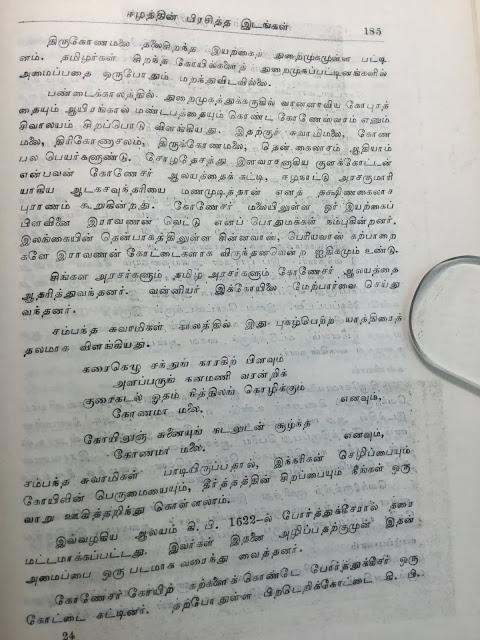 ஈழத்தின் பிரசித்த இடங்கள்
185
திருகோணமலை தலைசிறந்த இயற்கைத் துறைமுகமுள்ள பட்டி
னம். தமிழர்கள் சிறந்த கோயில்களைத் துறைமுகப்பட்டினங்களில்
அமைப்பதை ஒருபோதும் மறந்துவிடவில்லை.
பண்டைக்காலத்தில் துறைமுகத்துக்கருகில் வானளாவிய கோபுரத்
தையும் ஆயிரங்கால் மண்டபத்தையும் கொண்ட கோணேஸ்வரம் எனும்
சிவாலயம் சிறப்பொடு விளங்கியது. இதற்குச் சுவாமிமலை, கோண
மலை, திரிகோணாசலம், திருக்கோணமலை, தென்கைலாசம் ஆதியாம்
பல பெயர்களுண்டு. சோழதேசத்து இளவரசனாகிய குளக்கோட்டன்
என்பவன் கோணேசர் ஆலயத்தைக் கட்டி, ஈழநாட்டு அரசகுமாரி
யாகிய ஆடகசவுந்தரியை மணமுடித்தான் எனத் தக்ஷிணகைலாச
புராணம் கூறுகின்றது. கோணேசர் மலையிலுள்ள ஓர் இயற்கைப்
பிளவினை இராவணன் வெட்டு எனப் பொதுமக்கள் நம்புகின்றனர்.
இலங்கையின் தென்பாகத்திலுள்ள சின்னவாஸ், பெரியவாஸ் கற்பாறை
களே இராவணன் கோட்டைகளாக விருந்தனவென்ற ஐதிகமும் உண்டு.
சிங்கள அரசர்களும் தமிழ அரசர்களும் கோணேசர் ஆலயத்தை
ஆதரித்துவந்தனர். வன்னியர் இக்கோயிலை மேற்பார்வை செய்து
வந்தனர்.
சம்பந்த சுவாமிகள் காலத்தில் இது புகழ்பெற்ற யாத்திரைத்
தலமாக விளங்கியது.
கரைகெழு சந்துங் காரகிற் பிளவும்
அளப்பருங் கனமணி வரன்றிக்
குரைகடல் ஓதம் நித்திலங் கொழிக்கும்
கோணமா மலை. எனவும்,
கோயிலுஞ் சுனையுங் கடலுடன் சூழ்ந்த
கோணமா மலை. எனவும்,
சம்பந்த சுவாமிகள் பாடியிருப்பதால், இந்நகரின் செழிப்பையும்
கோயிலின் பெருமையையும், தீர்த்தத்தின் சிறப்பையும் நீங்கள் ஒரு
வாறு ஊகித்தறிந்து கொள்ளலாம்.
இவ்வழகிய ஆலயம் கி. பி. 1622-ல் போர்த்துக்கீசரால் தரை
மட்டமாக்கப்பட்டது. இவர்கள் இதனை அழிப்பதற்குமுன் இதன்
அமைப்பை ஒரு படமாக வரைந்து வைத்தனர்.
கோணேசர் கோயிற் கற்களைக் கொண்டே போர்த்துக்கீசர் ஒரு
கோட்டை கட்டினர். தற்போதுள்ள பிறடெறிக்கோட்டை கி. பி.
24